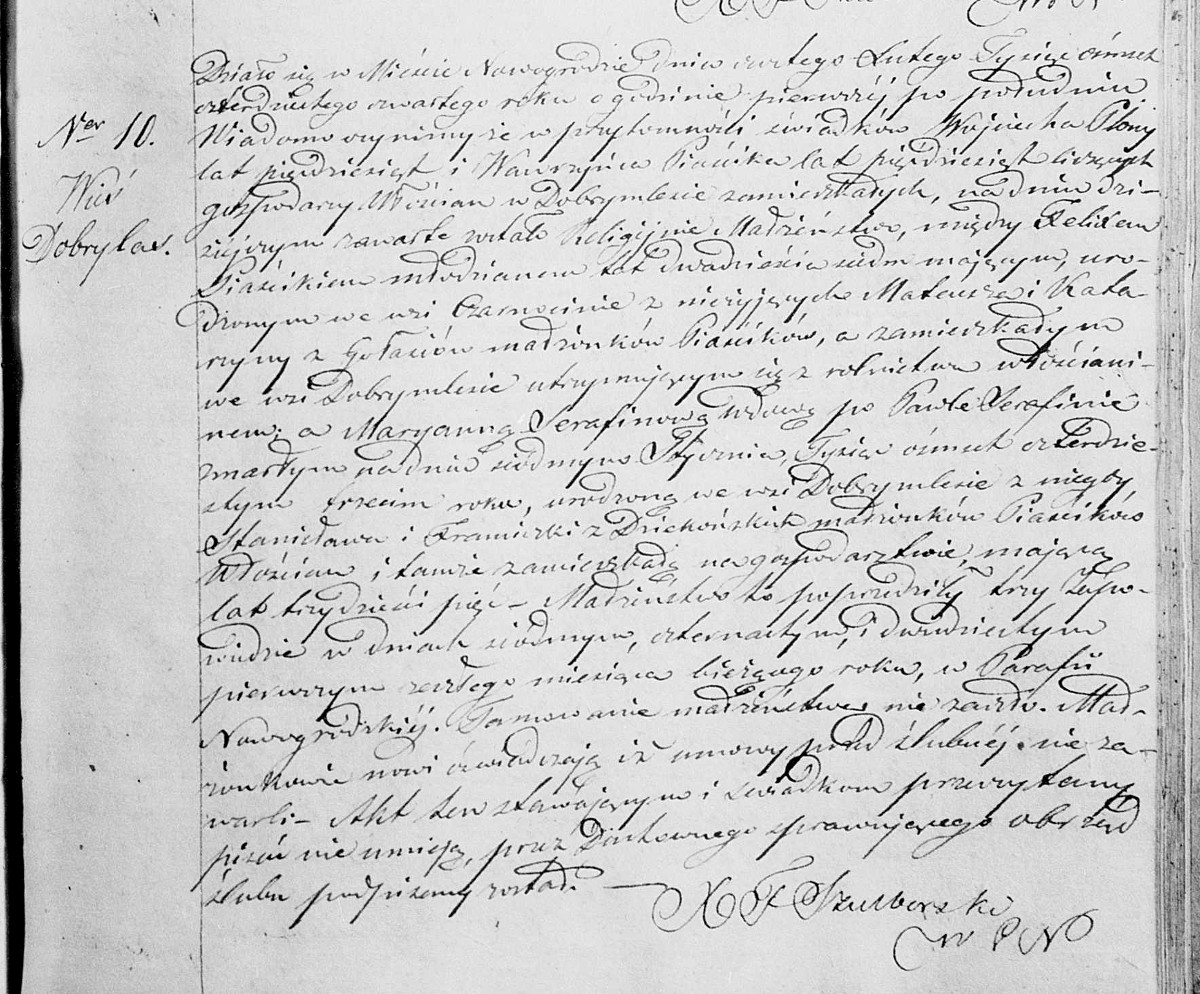 Działo się w Mieście Nowogrodzie dnia czwartego Lutego Tysiąc ośmset
czterdziestego czwartego roku o godzinie pierwszéj po południu
Ner 10.
Wiadomo czynimy że w przytomności świadków Wojciecha
lat piędziesiąt i Wawrzyńca Piaścika lat pięcdziesiąt liczących
Wieś
Dobrylas.
gospodarzy Włościan w Dobrymlesie zamieszkałych, na dniu dzi-
siejszym zawarte zostało Religijnie Małżeństwo, między Felixem
Piaścikiem młodzianem lat dwadzieścia siedm mającym, uro-
dzonym we wsi Czarnocinie z nieżyjących Mateusza i Kata-
rzyny z Gołasiów małżonków Piaścików, a zamieszkałym
we wsi Dobrymlesie utrzymującym się z rolnictwa włościani-
nem; a Maryanną Serafinową Wdową po Pawle Serafinie
zmarłym na dniu siódmym Stycznia, Tysiąc ośmset czterdzie-
stym trzecim roku, urodzoną we wsi Dobrymlesie z niegdy
Stanisława i Franciszki z małżonków Piaścików
Włościan i tamże zamieszkałą na gospodarstwie, mającą
lat trzydzieści pięć – Małżeństwo to poprzedziły trzy Zapo-
wiedzie w dniach siódmym, czternastym, i dwudziestym
pierwszym zeszłego miesiąca bieżącego roku, w Parafii
Nowogrodzkiéj. Tamowanie małżeństwa nie zaszło. Mał-
żonkowie nowi oświadczają iż umowy przed ślubnéj nie za-
warli – Akt ten stawającym i świadkom przeczytany
pisać nie umieją, przez Duchownego sprawującego obrzęd
ślubu podpisany został. —
X F Szulborski
W P N